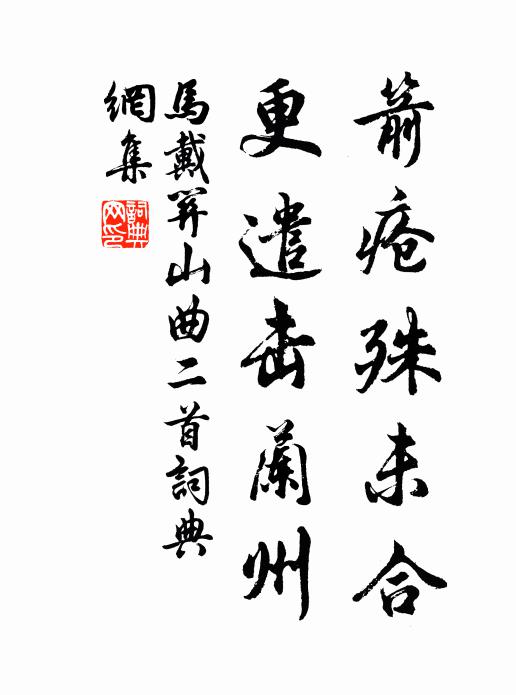 箭瘡殊未合
更遣击蘭州
馬戴關山曲二首詞典
網集
詞典
网印